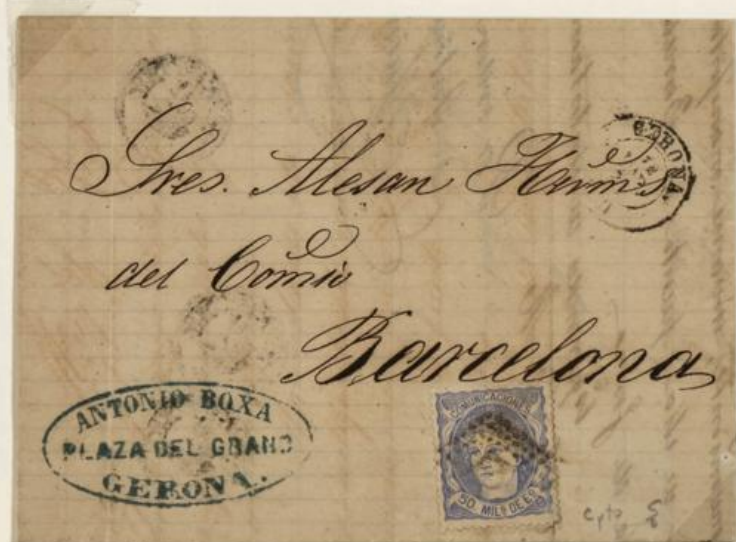 GERONA
Sres. Alesan Herms
del Comio
Barcelona
ANTONIO BOXA
PLAZA DEL GRANO
GERONA.
COMUNICACIONES
50 MILS DE EO
cpto